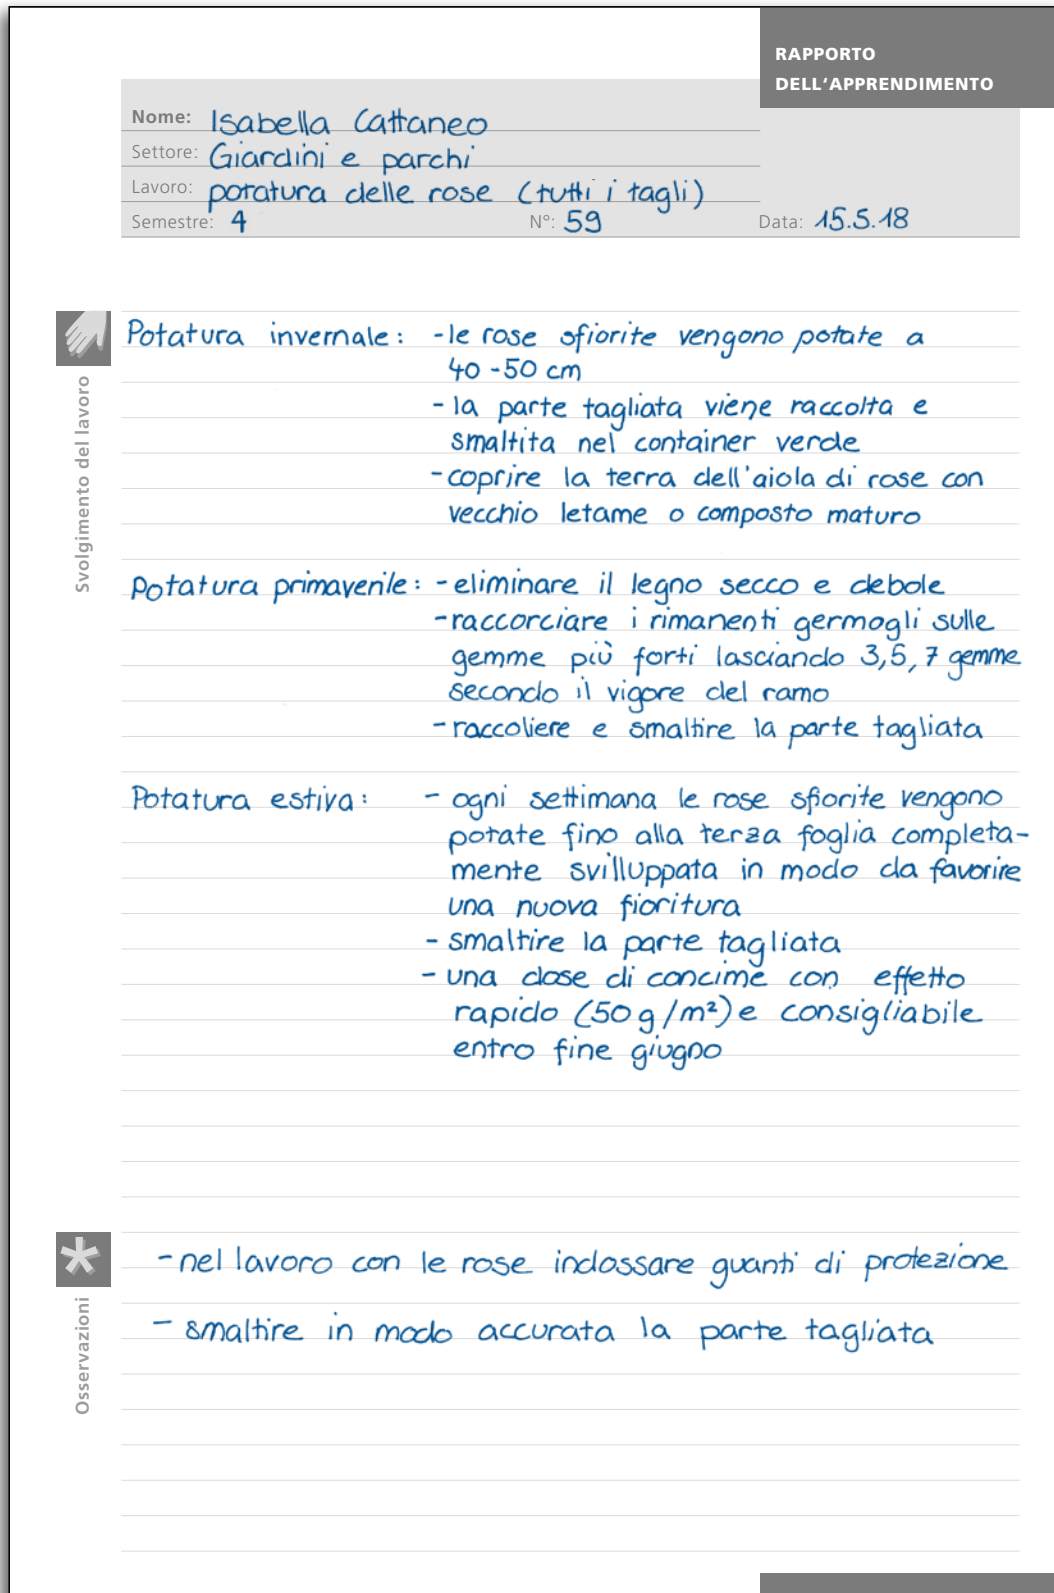 RAPPORTO
DELL'APPRENDIMENTO
Nome: Isabella Cattaneo
Settore: Giardini e parchi
Lavoro: potatura delle rose (tutti i tagli)
Semestre: 4 N°: 59 Data: 15.5.18
Svolgimento del lavoro
Potatura invernale: - le rose sfiorite vengono potate a
40-50 cm
- la parte tagliata viene raccolta e
smaltita nel container verde
- coprire la terra dell'aiola di rose con
vecchio letame o composto maturo
Potatura primaverile: - eliminare il legno secco e debole
- raccorciare i rimanenti germogli sulle
gemme più forti lasciando 3,5,7 gemme
secondo il vigore del ramo
- raccoliere e smaltire la parte tagliata
Potatura estiva: - ogni settimana le rose sfiorite vengono
potate fino alla terza foglia completa-
mente svilluppata in modo da favorire
una nuova fioritura
- smaltire la parte tagliata
- una dose di concime con effetto
rapido (50 g/m²) e consigliabile
entro fine giugno
Osservazioni
- nel lavoro con le rose indossare guanti di protezione
- smaltire in modo accurata la parte tagliata